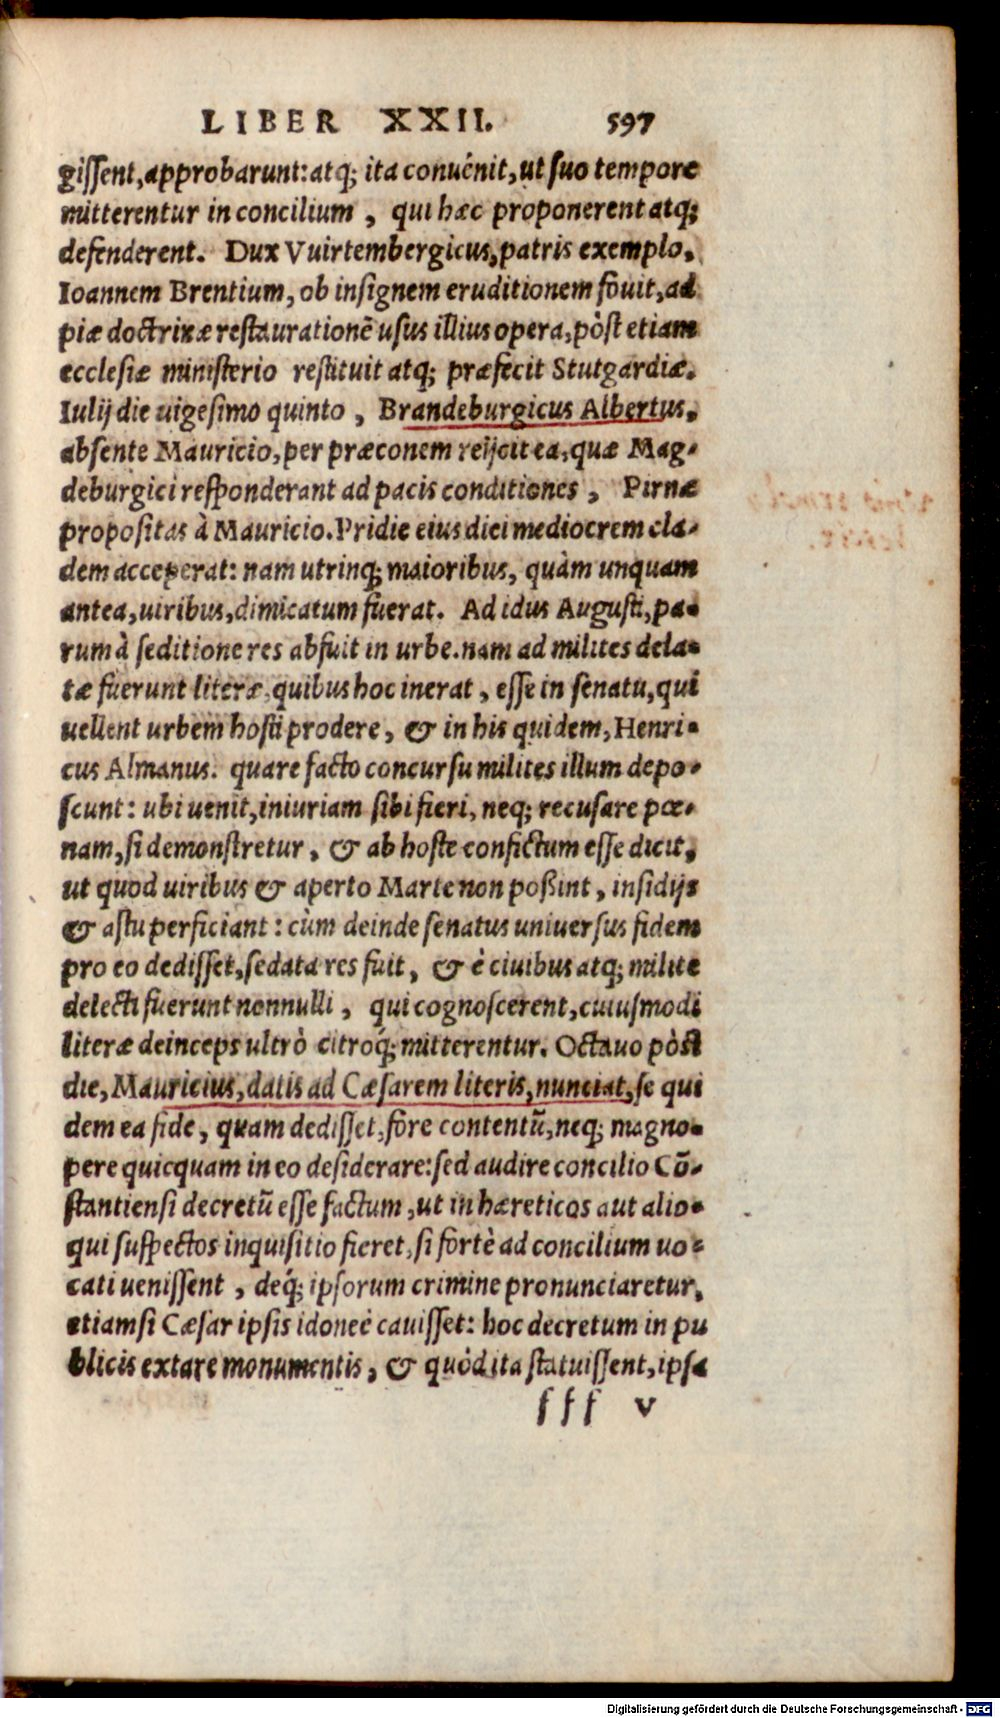 LIBER XXII. 597
gissent, approbarunt: atq; ita convénit, ut suo tempore
mitterentur in concilium, qui hæc proponerent atq;
defenderent. Dux Vuirtembergicus, patris exemplo,
Ioannem Brentium, ob insignem eruditionem fouit, ad
piæ doctrinæ restaurationē usus illius opera, pòst etiam
ecclesiæ ministerio restituit atq; præfecit Stutgardiæ.
Iulij die uigesimo quinto, Brandeburgicus Albertus,
absente Mauricio, per præconem reijcit ea, quæ Mag-
deburgici responderant ad pacis conditiones, Pirnæ
propositas à Mauricio. Pridie eius diei mediocrem cla-
dem acceperat: nam utrinq; maioribus, quàm unquam
antea, uiribus, dimicatum fuerat. Ad idus Augusti, pa-
rum à seditione res abfuit in urbe. nam ad milites dela-
tæ fuerunt literæ, quibus hoc inerat, esse in senatu, qui
uellent urbem hosti prodere, & in his quidem, Henri-
cus Almanus. quare facto concursu milites illum depo-
scunt: ubi uenit, iniuriam sibi fieri, neq; recusare pœ-
nam, si demonstretur, & ab hoste confictum esse dicit,
ut quod uiribus & aperto Marte non poßint, insidijs
& astu perficiant: cùm deinde senatus uniuersus fidem
pro eo dedisset, sedata res fuit, & è ciuibus atq; milite
delecti fuerunt nonnulli, qui cognoscerent, cuiusmodi
literæ deinceps ultrò citroq́; mitterentur. Octauo pòst
die, Mauricius, datis ad Cæsarem literis, nunciat, se qui
dem ea fide, quam dedisset, fore contentū, neq; magno-
pere quicquam in eo desiderare: sed audire concilio Cō-
stantiensi decretū esse factum, ut in hæreticos aut alio-
qui suspectos inquisitio fieret, si fortè ad concilium uo-
cati uenissent, deq́; ipsorum crimine pronunciaretur,
etiamsi Cæsar ipsis idoneè cauisset: hoc decretum in pu
blicis extare monumentis, & quòd ita statuissent, ipsa
fff v
Digitalisierung gefördert durch die Deutsche Forschungsgemeinschaft - DFG